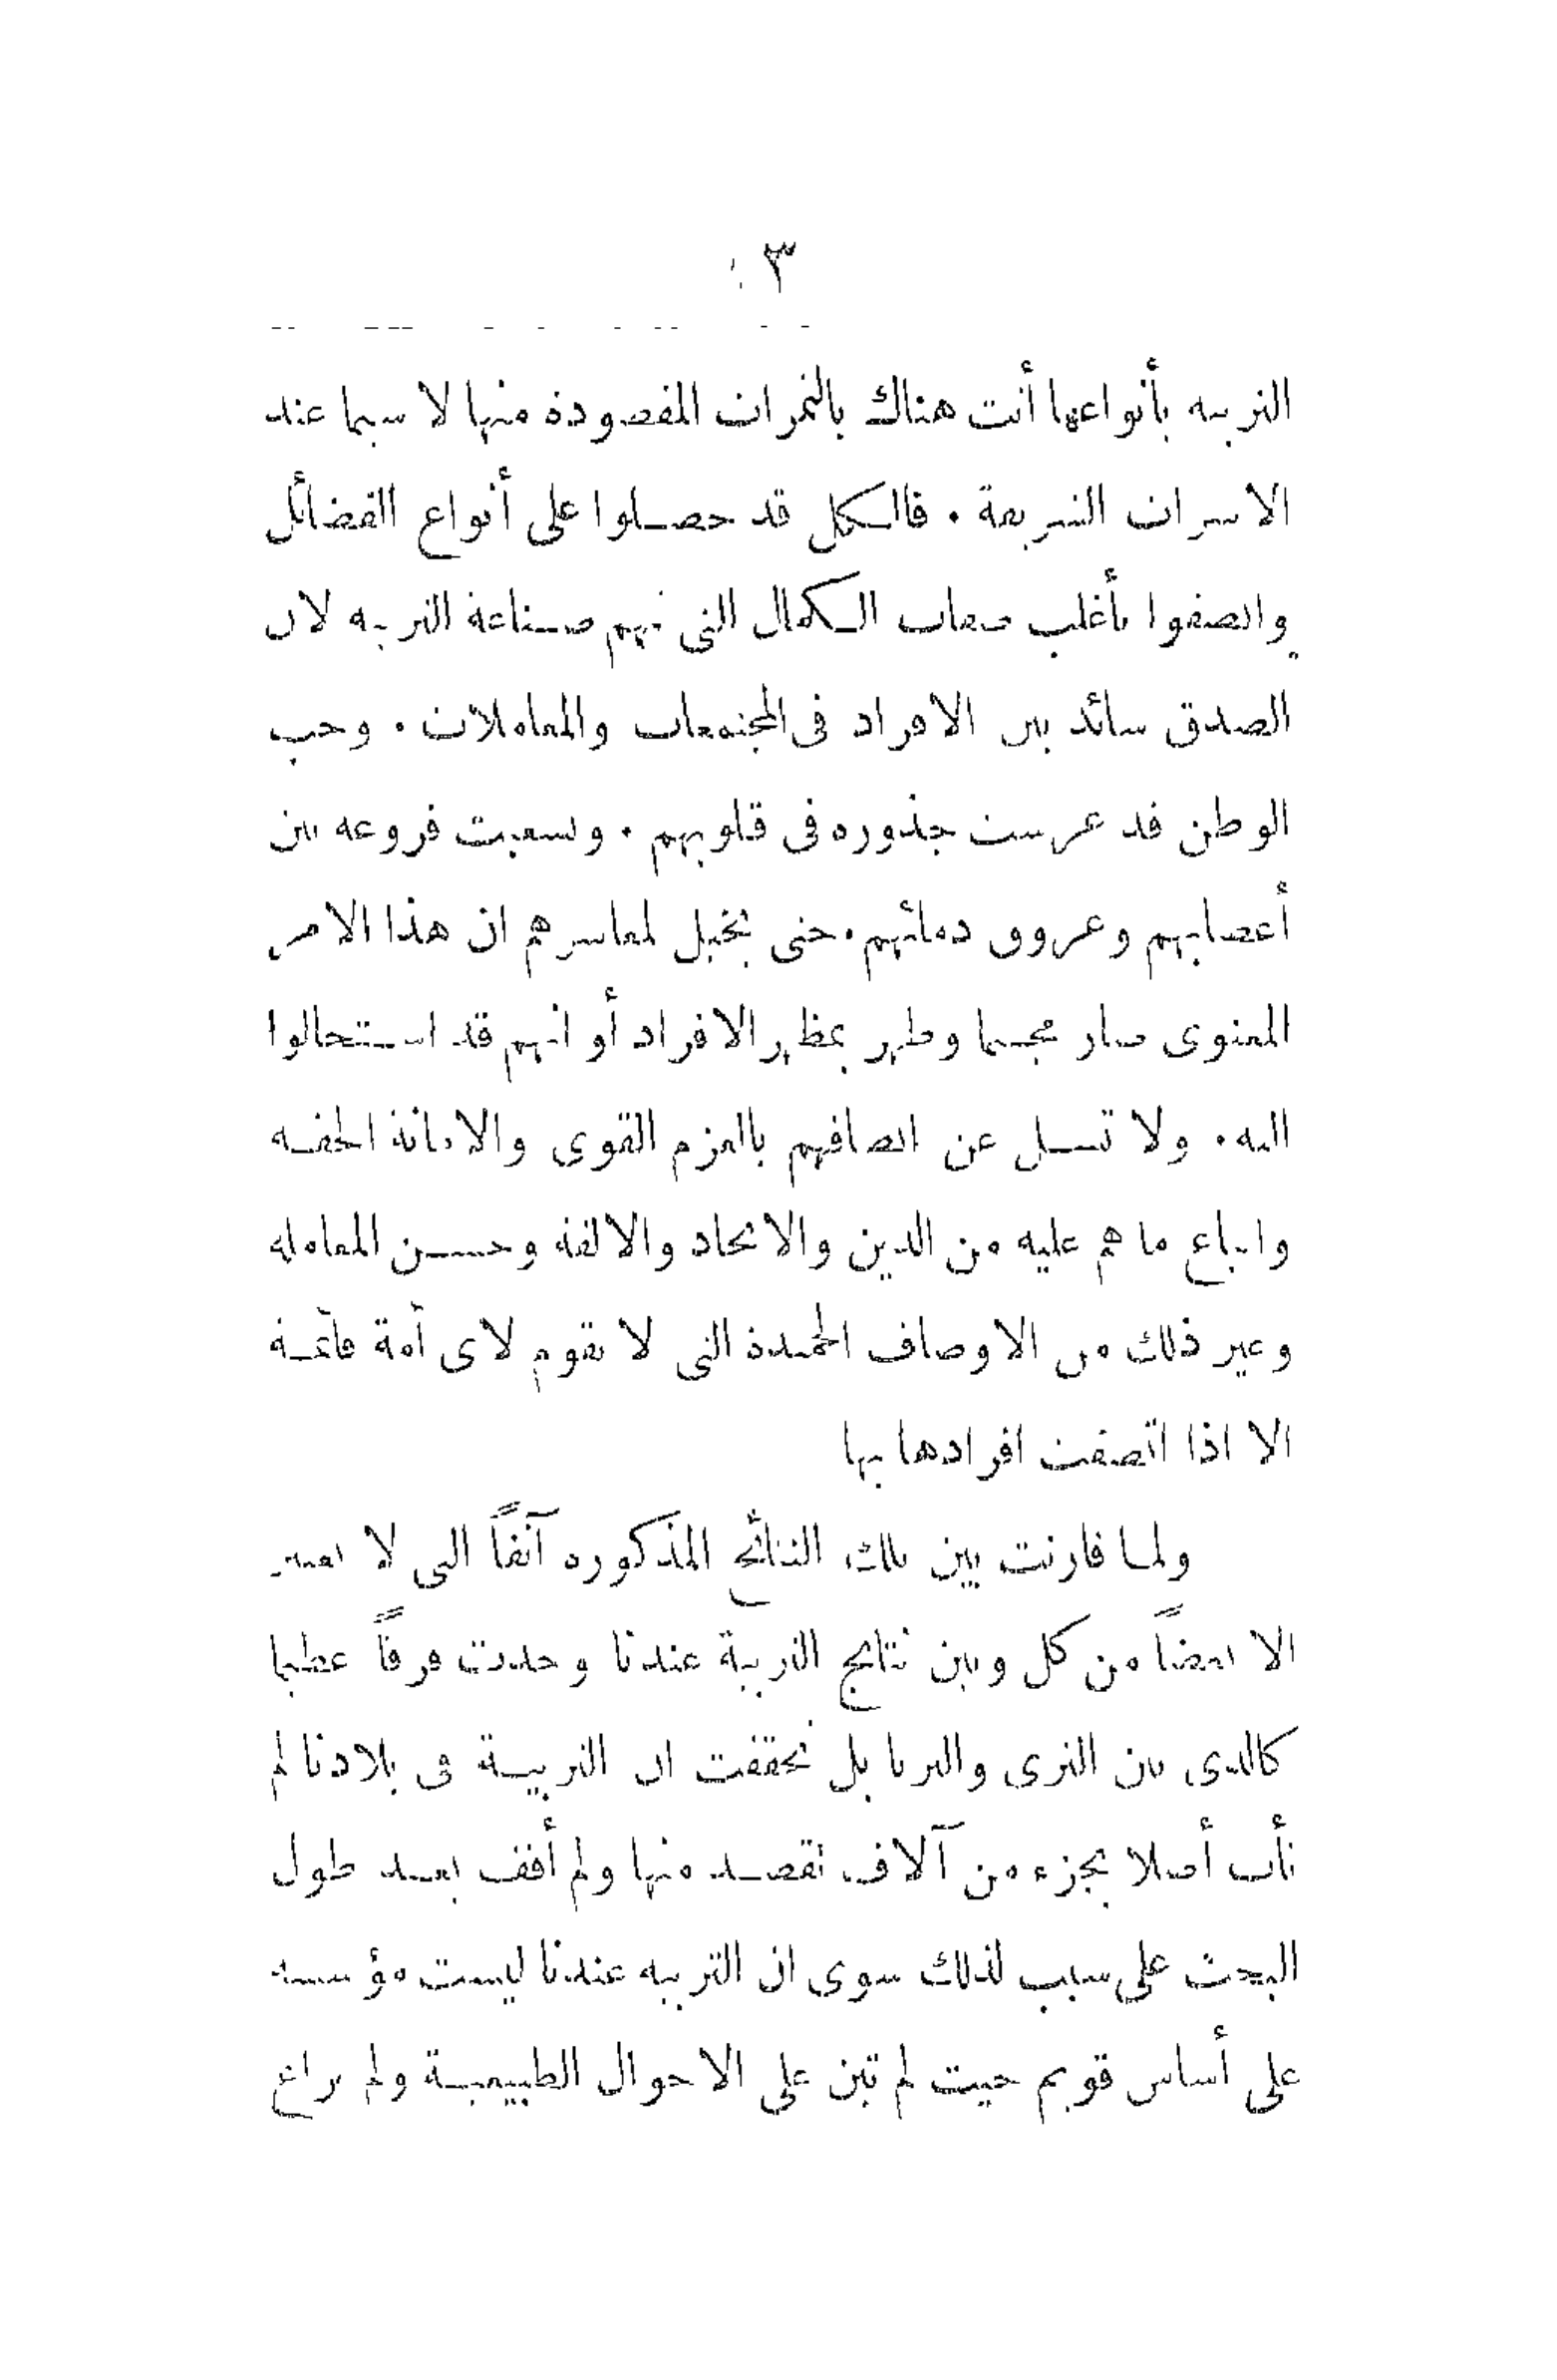 ٣
التربيه بأنواعها أتت هناك بالثمرات المقصودة منها لا سيما عند
الاسرات الشريفة . فالكل قد حصلوا على أنواع الفضائل
واتصفوا بأغلب صفات الكمال التى تهم صناعة التربيه لان
الصدق سائد بين الافراد فى المجتمعات والمعاملات . وحب
الوطن قد غرست جذوره فى قلوبهم . وتشعبت فروعه بين
أعصابهم وعروق دمائهم . حتى يخيل لمعاشرهم ان هذا الامر
المعنوى صار مجسما وظهر بمظهر الافراد أو انهم قد استحالوا
اليه . ولا تسل عن اتصافهم بالعزم القوى والامانة الحقيه
واتباع ما هم عليه من الدين والاتحاد والالفة وحسن المعامله
وغير ذلك من الاوصاف الحميدة التى لا تقوم لاى أمة قائمة
الا اذا اتصفت افرادها بها
ولما قارنت بين تلك النتائج المذكوره آنفاً التى لا تعتبر
الا بعضاً من كل وبين نتايج التربية عندنا وجدت فرقاً عظيما
كالذى بين الثرى والثريا بل تحققت ان التربية فى بلادنا لم
تأت أصلا بجزء من آلاف تقصد منها ولم أقف بعد طول
البحث على سبب لذلك سوى ان التربيه عندنا ليست مؤسسه
على أساس قويم حيث لم تبن على الاحوال الطبيعية ولم يراع